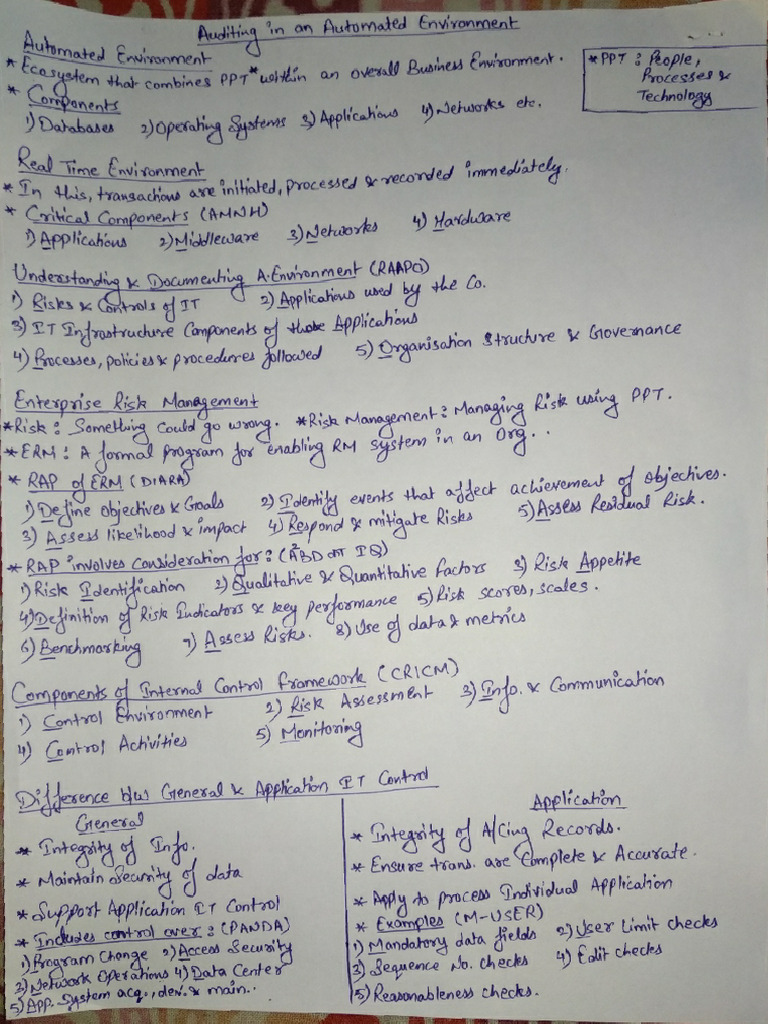 Auditing in an Automated Environment
Automated Environment
* Ecosystem that combines PPT* within an overall Business Environment.
* PPT : People,
Processes &
Technology
* Components
1) Databases 2) Operating Systems 3) Applications 4) Networks etc.
Real Time Environment
* In this, transactions are initiated, processed & recorded immediately.
* Critical Components (AMNH)
1) Applications 2) Middleware 3) Networks 4) Hardware
Understanding & Documenting A.Environment (RAAPO)
1) Risks & Controls of IT 2) Applications used by the Co.
3) IT Infrastructure Components of those Applications
4) Processes, policies & procedures followed 5) Organisation Structure & Governance
Enterprise Risk Management
* Risk : Something could go wrong. * Risk Management : Managing Risk using PPT.
* ERM : A formal program for enabling RM system in an Org..
* RAP of ERM (DIARA)
1) Define objectives & Goals 2) Identify events that affect achievement of objectives.
3) Assess likelihood & impact 4) Respond & mitigate Risks 5) Assess Residual Risk.
* RAP involves consideration for : (A²BD at IQ)
1) Risk Identification 2) Qualitative & Quantitative factors 3) Risk Appetite
4) Definition of Risk Indicators & key performance 5) Risk scores, scales.
6) Benchmarking 7) Assess Risks. 8) Use of data & metrics
Components of Internal Control Framework (CRICM)
1) Control Environment 2) Risk Assessment 3) Info. & Communication
4) Control Activities 5) Monitoring
Difference b/w General & Application IT Control
General
* Integrity of Info.
* Maintain Security of data
* Support Application IT Control
* Includes control over : (PANDA)
1) Program Change 2) Access Security
3) Network Operations 4) Data Center
5) App. System acq., dev. & main..
Application
* Integrity of A/Cing Records.
* Ensure trans. are Complete & Accurate.
* Apply to process Individual Application
* Examples (M-USER)
1) Mandatory data fields 2) User Limit checks
3) Sequence No. checks 4) Edit checks
5) Reasonableness checks.